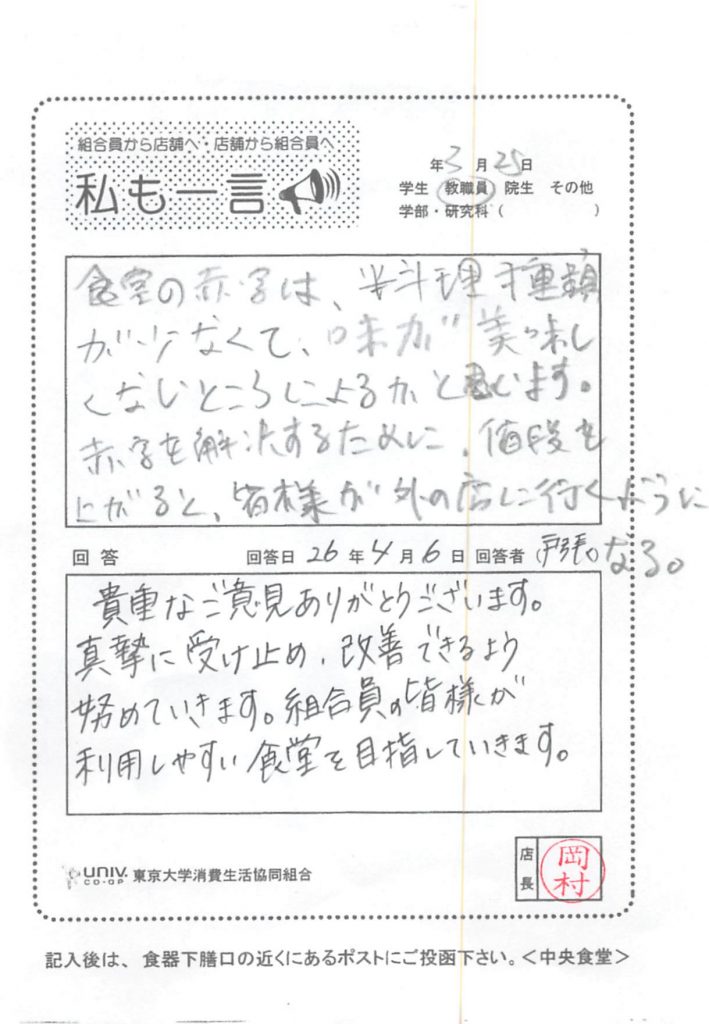 組合員から店舗へ・店舗から組合員へ
私も一言
年 3 月 25 日
学生 教職員 院生 その他
学部・研究科（ ）
食堂の赤字は、料理種類
が少なくて、味が美味し
くないところによるかと思います。
赤字を解決するために、値段を
上がると、皆様が外の店に行くように
なる。
回答 回答日 26 年 4 月 6 日 回答者（戸張）
貴重なご意見ありがとうございます。
真摯に受け止め、改善できるよう
努めていきます。組合員の皆様が
利用しやすい食堂を目指していきます。
UNIV. CO-OP 東京大学消費生活協同組合
店長 岡村
記入後は、食器下膳口の近くにあるポストにご投函下さい。＜中央食堂＞